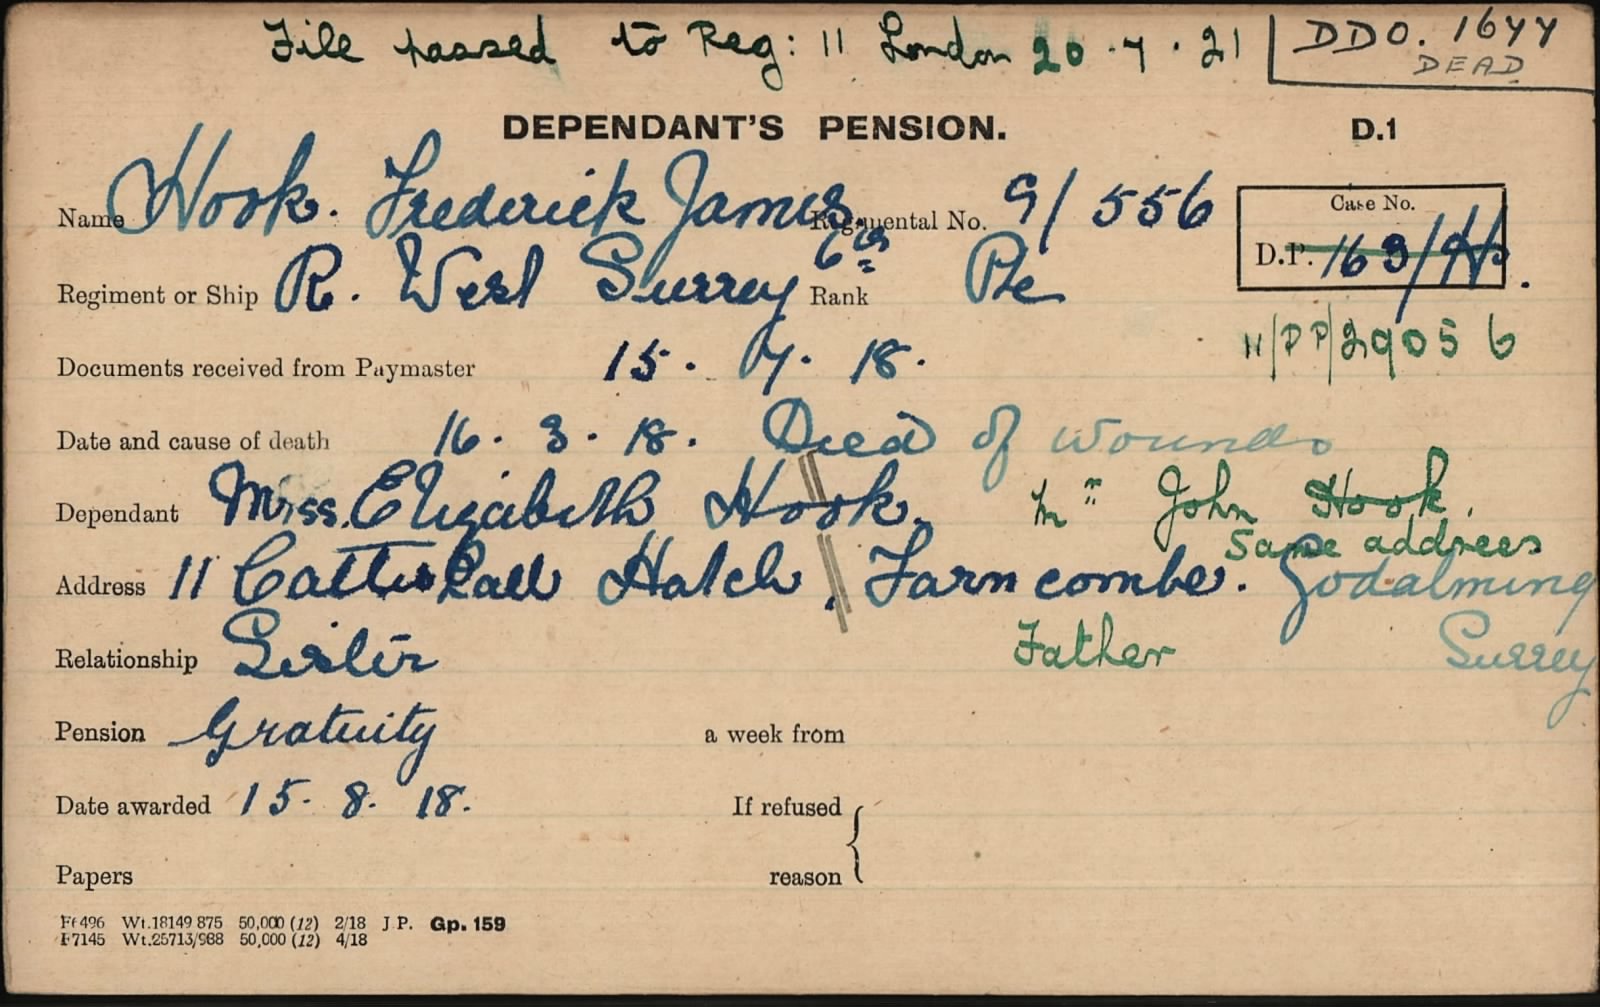 File passed to Reg: 11 London 20.7.21
DDO. 1644
DEAD
DEPENDANT'S PENSION.
D.1
Name Hook. Frederick James. Regimental No. G/556
Case No.
D.P. 163/H.
Regiment or Ship R. West Surrey 6th Rank Pte
11/DP/29056
Documents received from Paymaster 15. 7. 18.
Date and cause of death 16. 3. 18. Died of wounds
Dependant Miss. Elizabeth Hook. Mr John Hook,
same address
Address 11 Hatch, Farncombe. Godalming
Surrey
Relationship Sister Father
Pension Gratuity a week from
Date awarded 15. 8. 18. If refused
Papers reason
F6496 Wt.18149 875 50,000 (12) 2/18 J.P. Gp. 159
F7145 Wt.25713/988 50,000 (12) 4/18